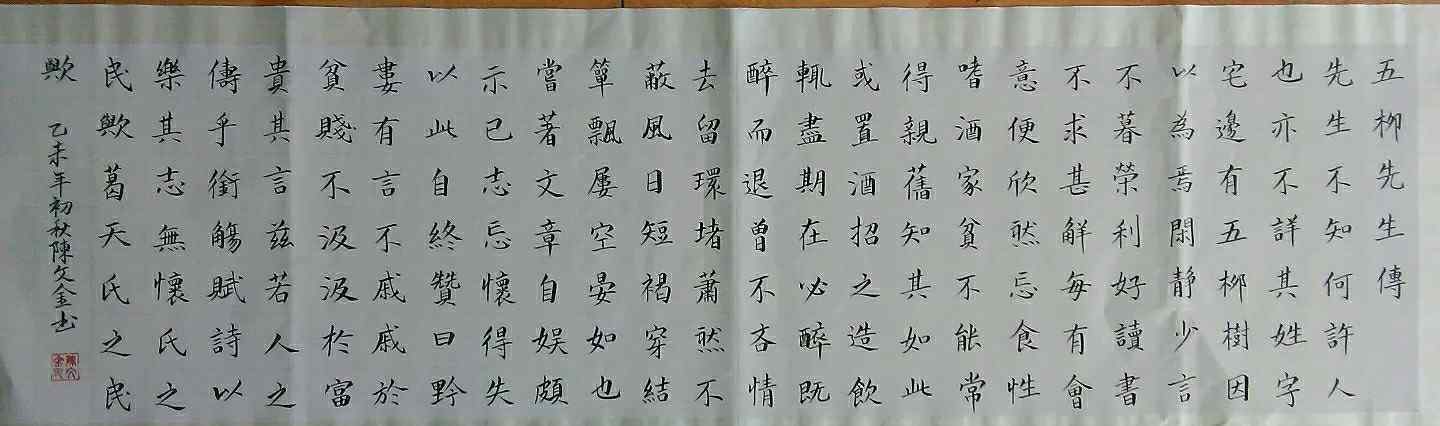 五柳先生傳
先生不知何許人
也亦不詳其姓字
宅邊有五柳樹因
以為焉閑靜少言
不暮榮利好讀書
不求甚解每有會
意便欣然忘食性
嗜酒家貧不能常
得親舊知其如此
或置酒招之造飲
輒盡期在必醉既
醉而退曾不吝情
去留環堵蕭然不
蔽風日短褐穿結
簞飄屢空晏如也
嘗著文章自娛頗
示己志忘懷得失
以此自終贊曰黔
婁有言不戚戚於
貧賤不汲汲於富
貴其言茲若人之
儔乎銜觴賦詩以
樂其志無懷氏之
民歟葛天氏之民
歟 乙未年初秋陳文金书